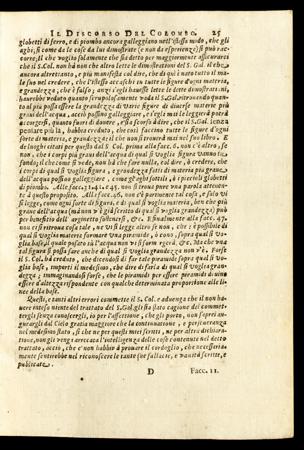 IL DISCORSO DEL COLOMBO. 25
globetti di ferro, e di piombo ancora galleggiano nell'istesso modo, che gli
aghi, sì come da le cose da lui dimostrate (e non da esperienze) si può rac-
corre. Il che voglio solamente che sia detto per maggiormente assicurarci
che il S. Col. non hà non che altro lette le dimostrazioni del S. Gal. il che
ancora altrettanto, e più manifesta col dire, che di quì è nato tutto il ma-
le suo nel credere, che l'istesso accaschi in tutte le figure d'ogni materia,
e grandezza, che è falso; anzi s'egli hauesse lette le dette dimostrazioni,
haurebbe veduto quanto scrupolosamente vada il S. Gal. ritrouando quan-
to al più possa essere la grandezza di varie figure di diuerse materie più
graui dell'acqua, acciò possino galleggiare, e s'egli mai le leggerà potrà
accorgersi, quanto fuori di douere, e sia forza di dire, che il S. Gal. senza
pensare più là, habbia creduto, che così faccino tutte le figure d'ogni
sorte di materia, e grandezza: il che non si trouerà mai nel suo libro. E
de luoghi citati per questo dal S. Col. prima alla facc. 6. non c'è altro, se
non, che i corpi più graui dell'acqua di qual si voglia figura vanno in
fondo; il che come si vede, non hà che fare nulla, col dire, ò credere, che
i corpi di qual si voglia figura, e grandezza fatti di materia più graue,
dell'acqua possino galleggiare, come gl'aghi sottili, ò i piccioli globetti
di piombo. Alle facc. 31. 41. e 45. non si troua pure vna parola attenen-
te à questo proposito. Alle facce. 46. non c'è parimente tal cosa, e solo vi
si legge, come ogni sorte di figura, e di qual si voglia materia, ben che più
graue dell'acqua (mà non v'è già scritto di qual si voglia grandezza) può
per benefitio dell'arginetto sostenersi, &c. E finalmente alla facc. 47.
non ci si ritroua cosa tale, ne vi si legge altro se non, che è possibile di
qual si voglia materia formare vna piramide, ò cono, sopra qual si vo-
glia base, il quale posato in l'acqua non vi si sommerga, &c. Mà che vna
tal figura si possa fare anche di qual si voglia grandezza non v'è. Forse
il S. Col. hà creduto, che dicendosi di far tale piramide sopra qual si vo-
glia base, importi il medesimo, che dire di farla di qual si voglia gran-
dezza; immaginandosi forse, che le piramidi per essere piramidi deuino
essere d'altezza rispondente con qualche determinata proportione alle li-
nee della base.
Questi, e tanti altri errori commette il S. Col. e aduenga che il non ha-
uere inteso niente del trattato del S. Gal. gli sia stato cagione dei commet-
tergli senza conoscergli, io per l'affettione, che gli porto, non saprei au-
gurargli dal Cielo gratia maggiore che la continuatione, e perseueranza
nel medesimo stato, sì che ne per questi miei scritti, ne per altra dichiara-
tione, non gli venga arrecata l'intelligenza delle cose contenute nel detto
trattato, acciò, che e' non habbia à prouare il cordoglio, che necessaria-
mente sentirebbe nel riconoscere le tante sue fallacie, e vanità scritte, e
publicate.
D Facc. 11.